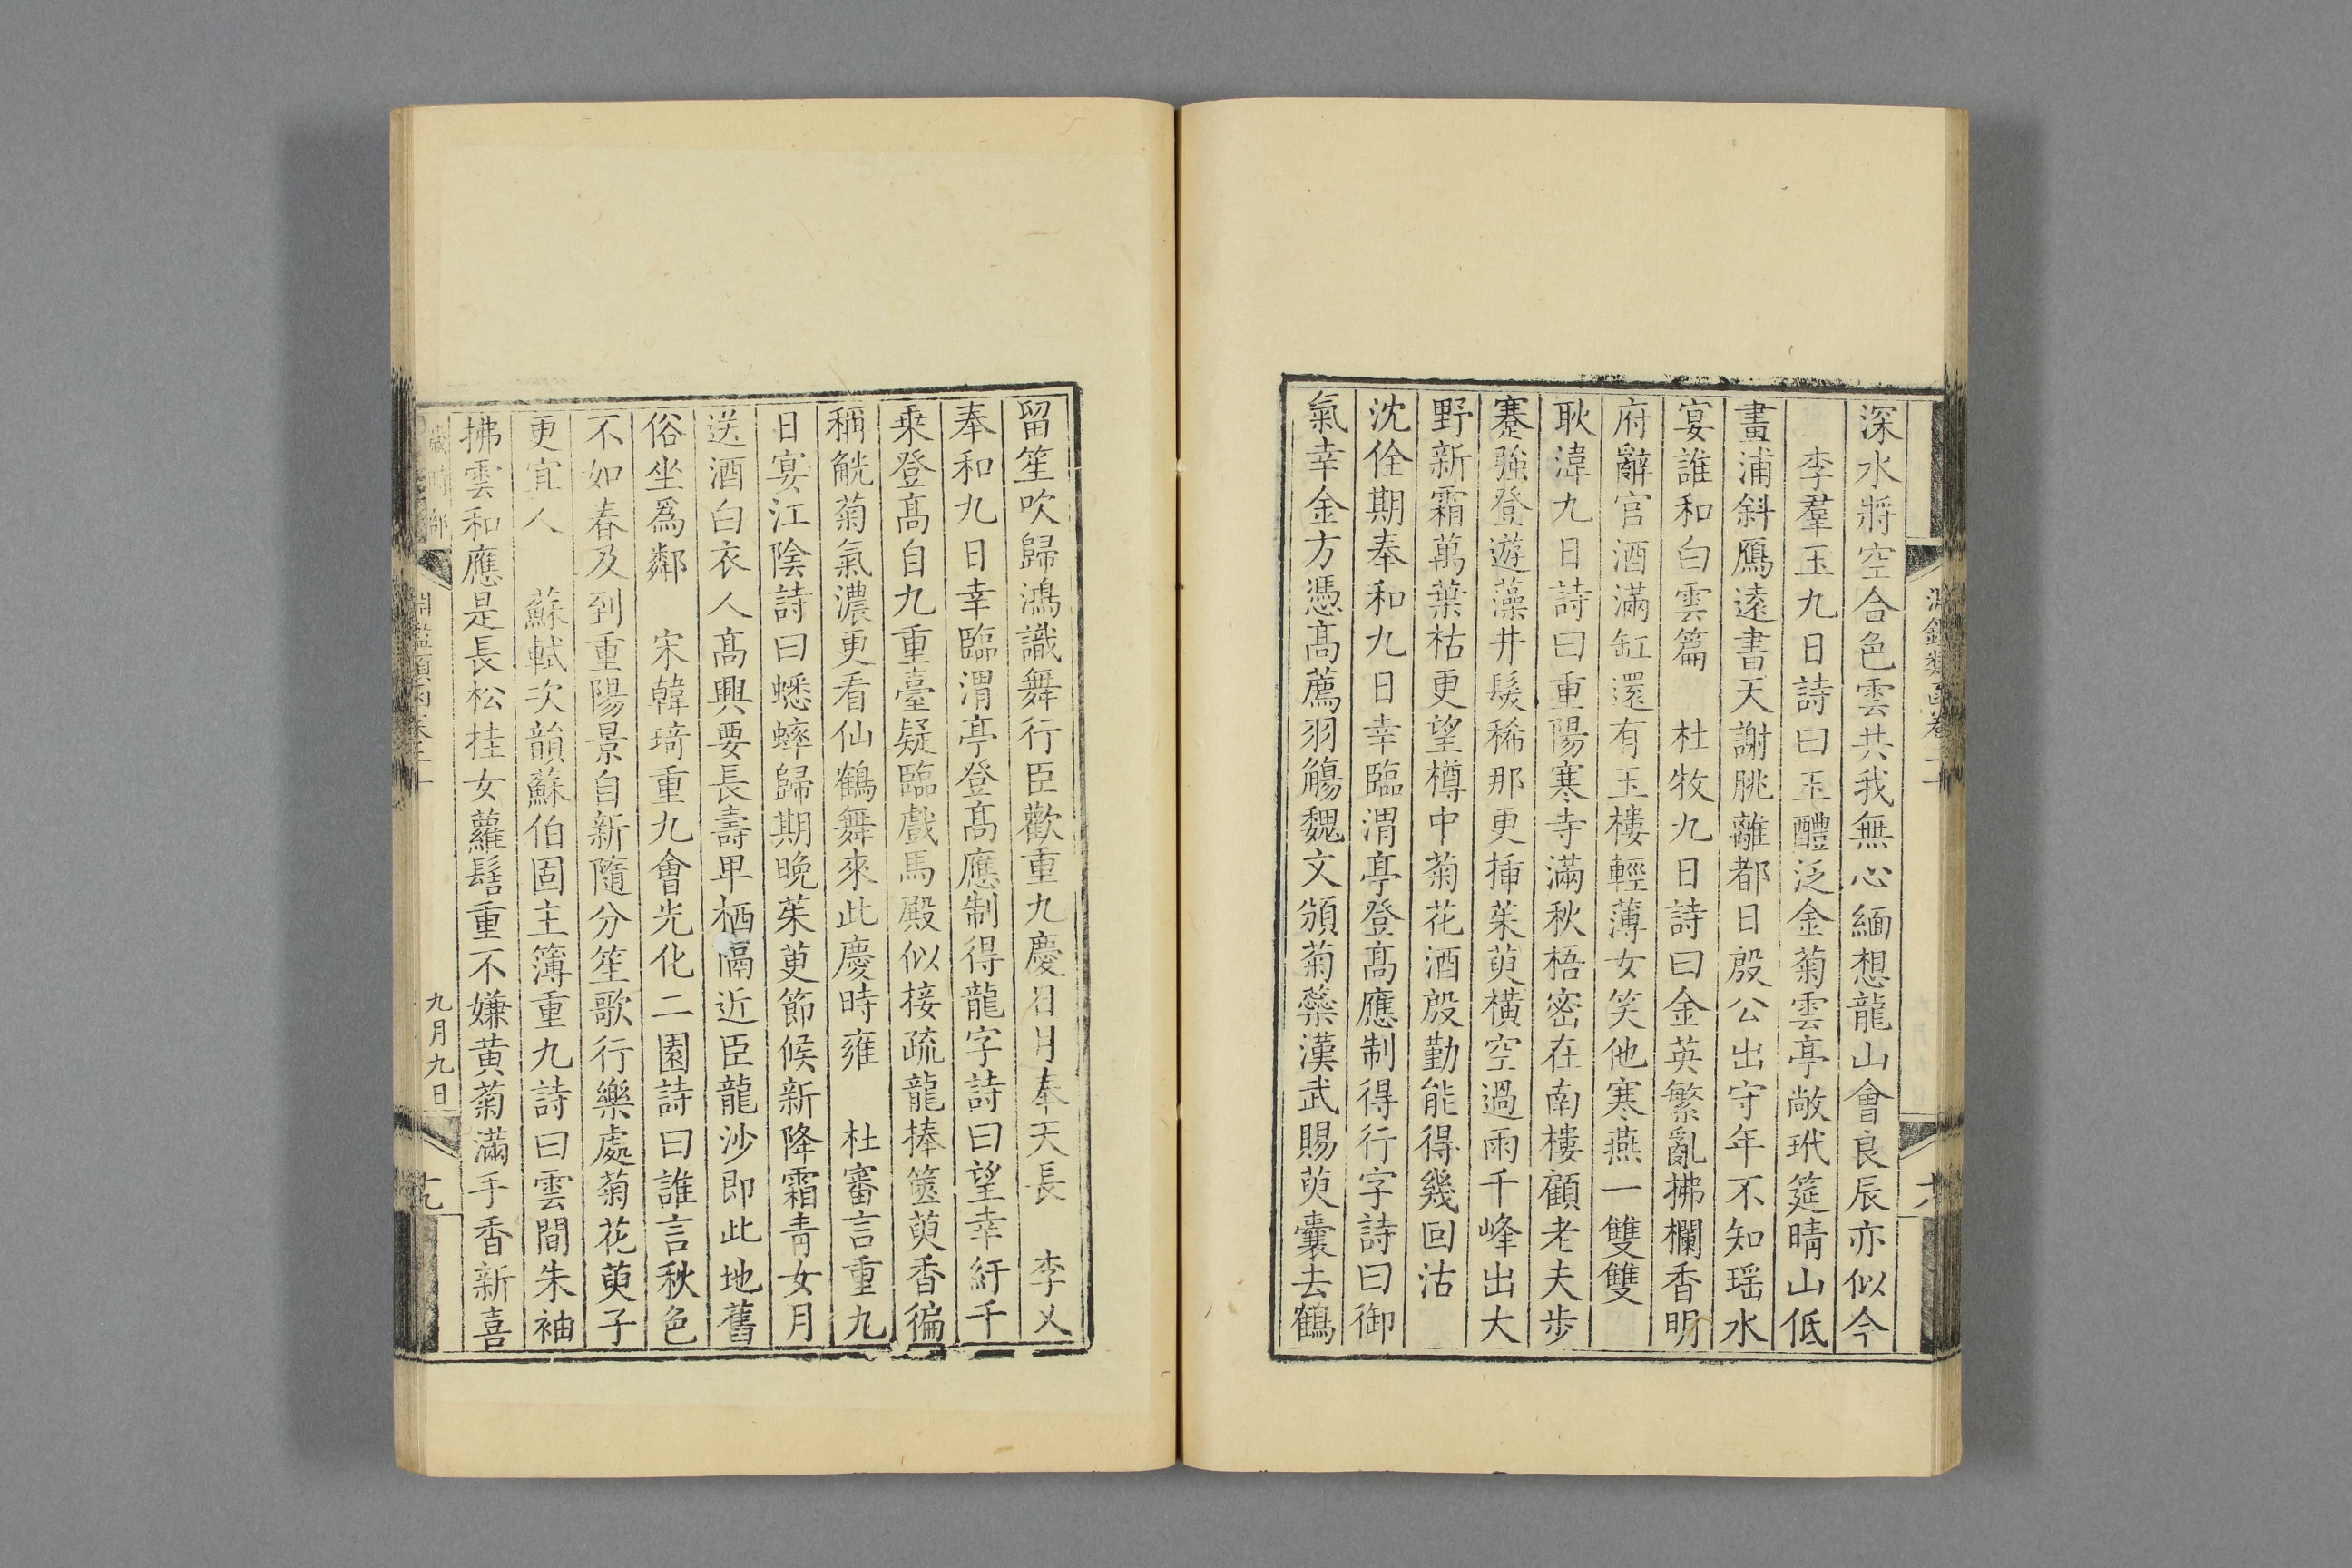 深水將空合色雲共我無心緬想龍山會良辰亦似今
李羣玉九日詩曰玉醴泛金菊雲亭敞玳筵晴山低
畫浦斜鴈遠書天謝朓離都日殷公出守年不知瑶水
宴誰和白雲篇　杜牧九日詩曰金英繁亂拂欄香明
府辭官酒滿缸還有玉樓輕薄女笑他寒燕一雙雙
耿湋九日詩曰重陽寒寺滿秋梧密在南樓顧老夫步
蹇強登遊藻井髮稀那更揷茱萸橫空過雨千峰出大
野新霜萬葉枯更望樽中菊花酒殷勤能得幾回沽
沈佺期奉和九日幸臨渭亭登髙應制得行字詩曰御
氣幸金方憑髙薦羽觴魏文頒菊蘂漢武賜萸囊去鶴
留笙吹歸鴻識舞行臣歡重九慶日月奉天長　李乂
奉和九日幸臨渭亭登髙應制得龍字詩曰望幸紆千
乗登髙自九重臺疑臨戲馬殿似接疏龍捧篋萸香徧
稱觥菊氣濃更看仙鶴舞來此慶時雍　杜審言重九
日宴江陰詩曰蟋蟀歸期晚茱萸節候新降霜青女月
送酒白衣人髙興要長壽卑栖隔近臣龍沙即此地舊
俗坐爲鄰　宋韓琦重九會光化二園詩曰誰言秋色
不如春及到重陽景自新隨分笙歌行樂處菊花萸子
更宜人　蘇軾次韻蘇伯固主簿重九詩曰雲間朱袖
拂雲和應是長松挂女蘿髻重不嫌黄菊滿手香新喜
九月九日